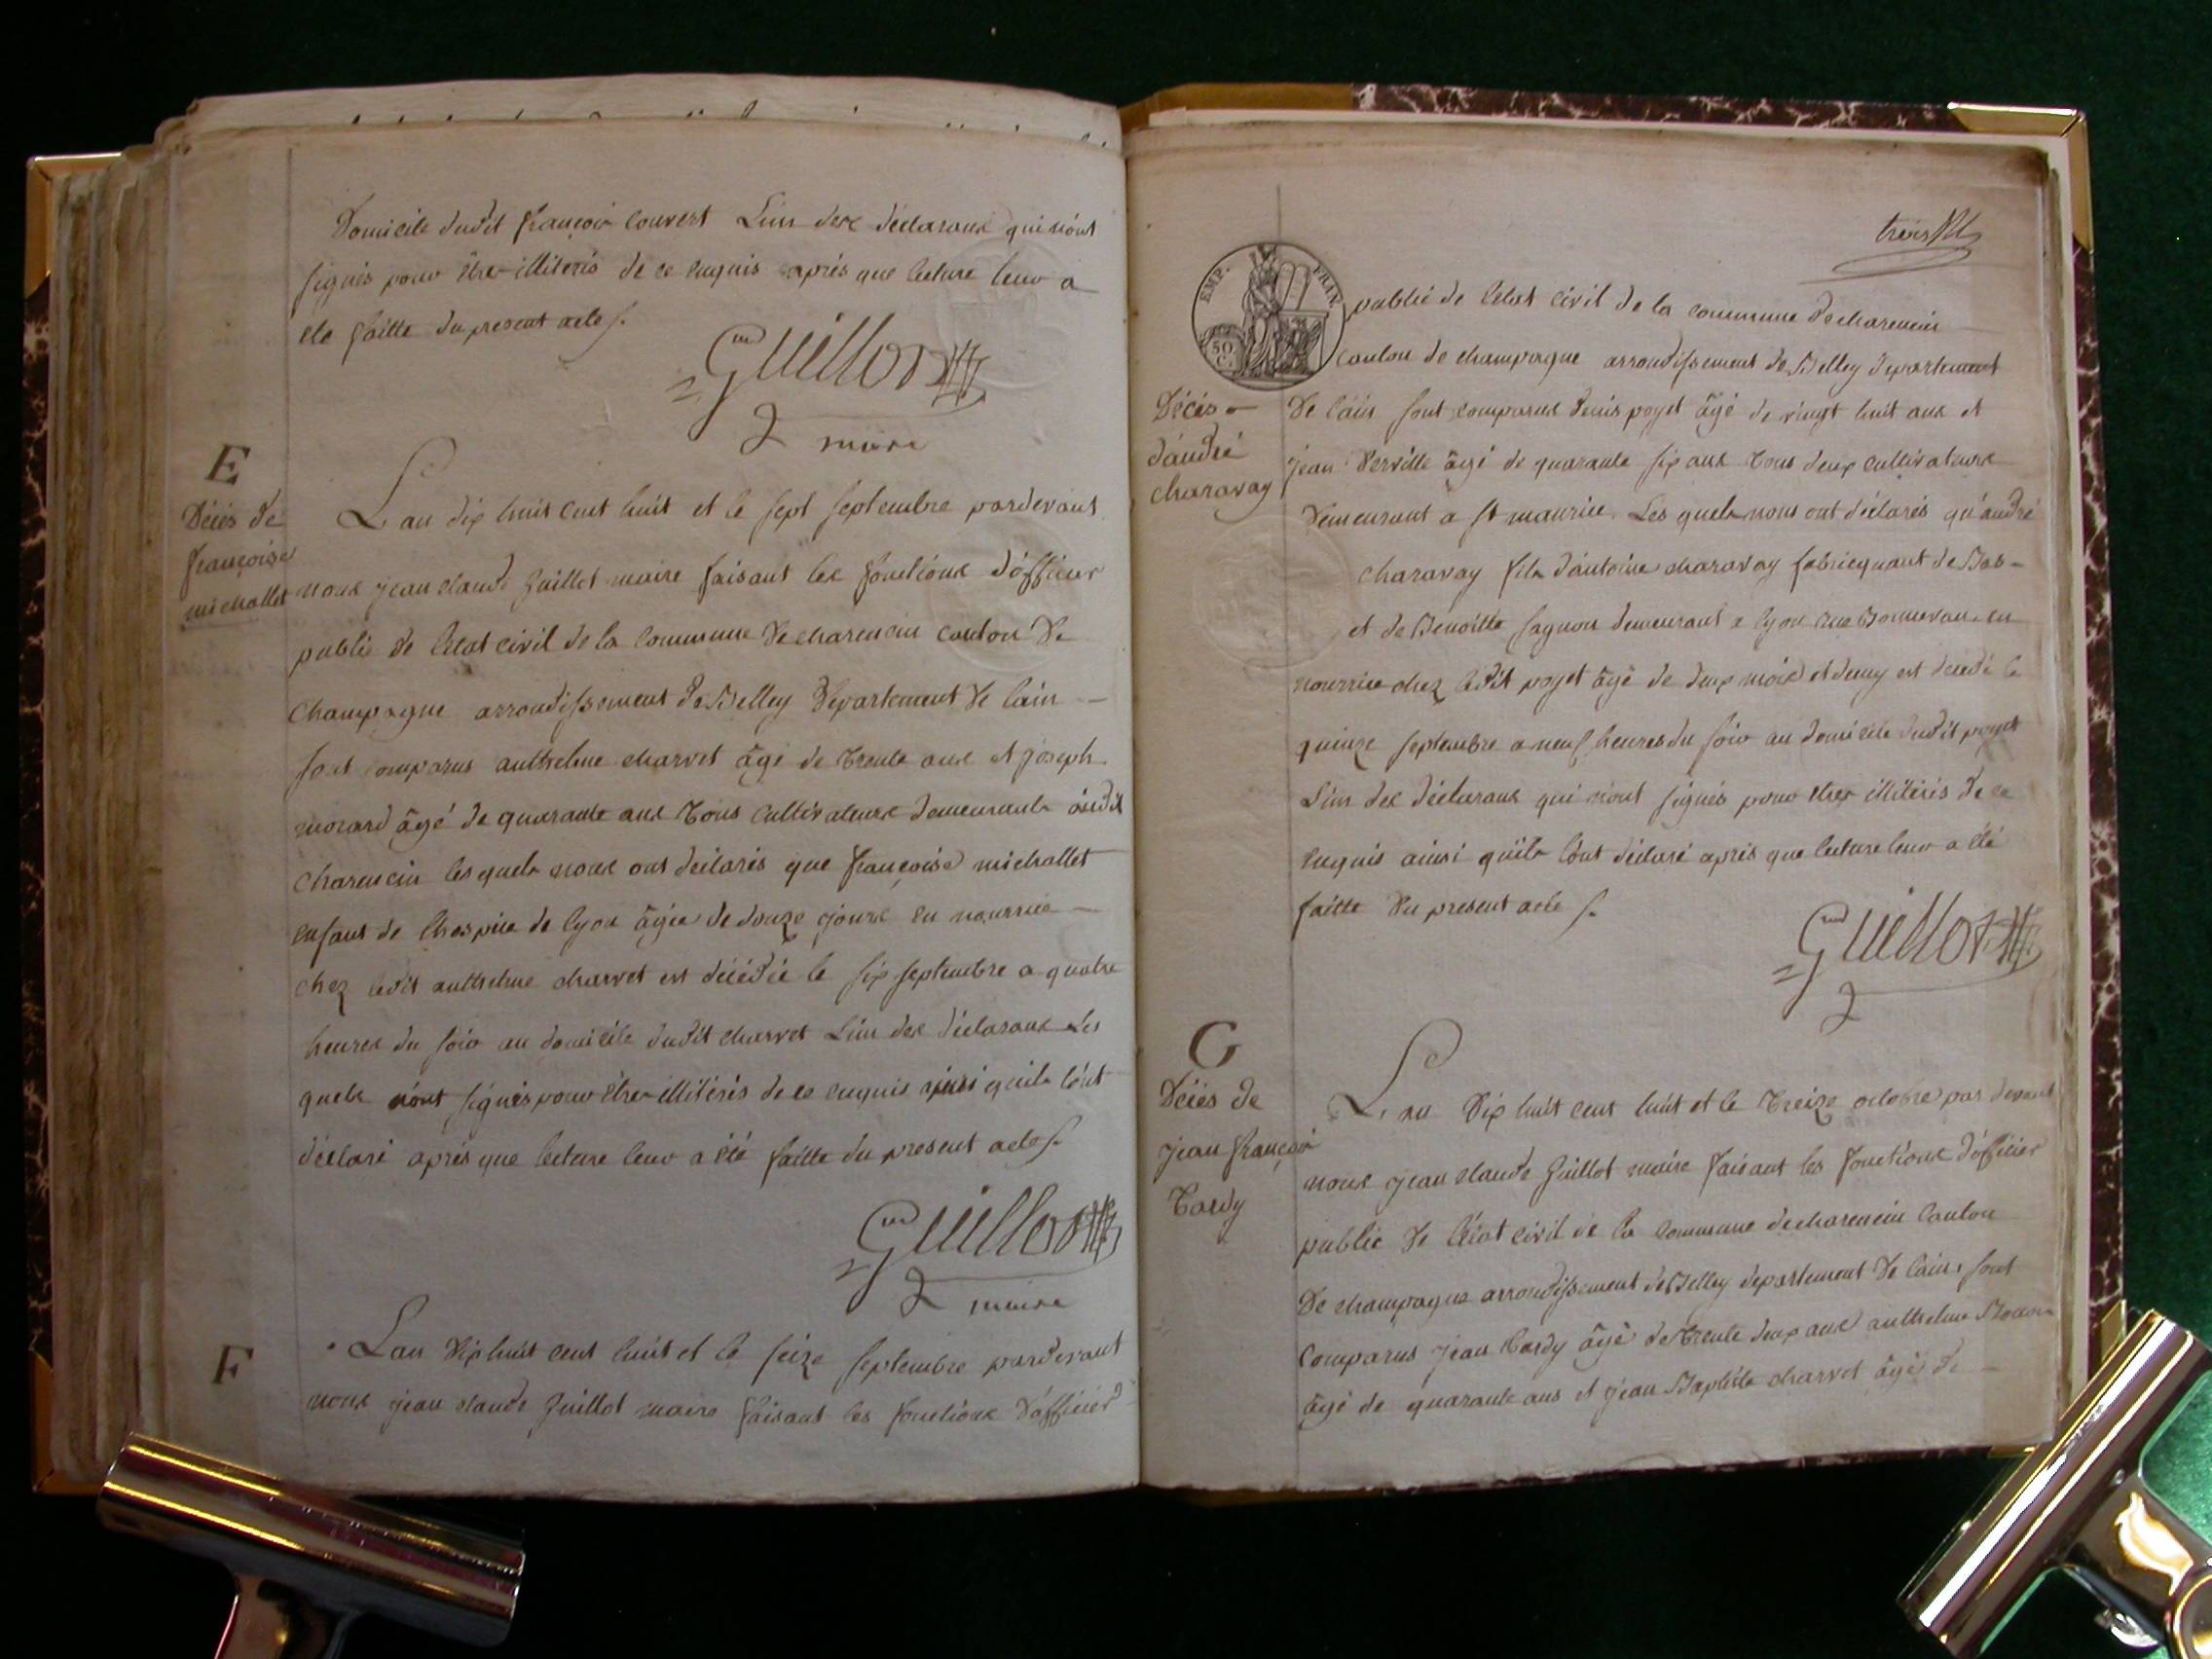 Domicile dudit françois Convert L'un des déclarans qui n'ont
signés pour être illiterés de ce enquis après que lecture leur a
été faitte du present acte /.
Guillot
maire
E
Décès de
françoise
michallet
L'an dix huit cent huit et le sept septembre pardevant
nous jean claude Guillot maire faisant les fonctions d'officier
public de l'état civil de la Commune de charencin canton de
Champagne arrondissement de Belley Département de l'ain —
sont comparus anthelme charvet âgé de trente ans et joseph
morard âgé de quarante ans tous cultivateurs demeurants audit
charencin lesquels nous ont déclarés que françoise michallet
enfant de l'hospice de lyon âgée de douze jours en nourrice —
chez ledit anthelme charvet est décédée le six septembre a quatre
heures du soir au domicile dudit charvet L'un des déclarans Les
quels n'ont signés pour être illitérés de ce enquis ainsi qu'ils l'ont
déclaré après que lecture leur a été faitte du present acte /.
Guillot
maire
F
L'an dix huit cent huit et le seize septembre pardevant
nous jean claude Guillot maire faisant les fonctions d'officier
trois
EMP. FRAN.
50 C.
public de l'état civil de la commune de charencin
canton de champagne arrondissement de Belley departement
Décès
d'andré
charavay
De l'ain sont comparus denis poyet âgé de vingt huit ans et
jean âgé de quarante six ans tous deux cultivateurs
Demeurant a st maurice. Les quels nous ont déclarés qu'andré
charavay fils d'antoine charavay fabricquant de Bas —
et de Benoitte demeurant a lyon rue en
nourrice chez ledit poyet âgé de deux mois et demy est decedé le
quinze septembre a neuf heures du soir au domicile dudit poyet
L'un des déclarans qui n'ont signés pour être illitérés de ce
enquis ainsi qu'ils l'ont déclaré après que lecture leur a été
faitte du present acte /.
Guillot
G
Décès de
jean françois
Tardy
L'an dix huit cent huit et le treize octobre par devant
nous jean claude Guillot maire faisant les fonctions d'officier
public de l'état civil de la commune de charencin canton
De champagne arrondissement de Belley departement de l'ain, sont
comparus jean tardy âgé de trente deux ans anthelme
âgé de quarante ans et jean Baptiste charvet âgé de —